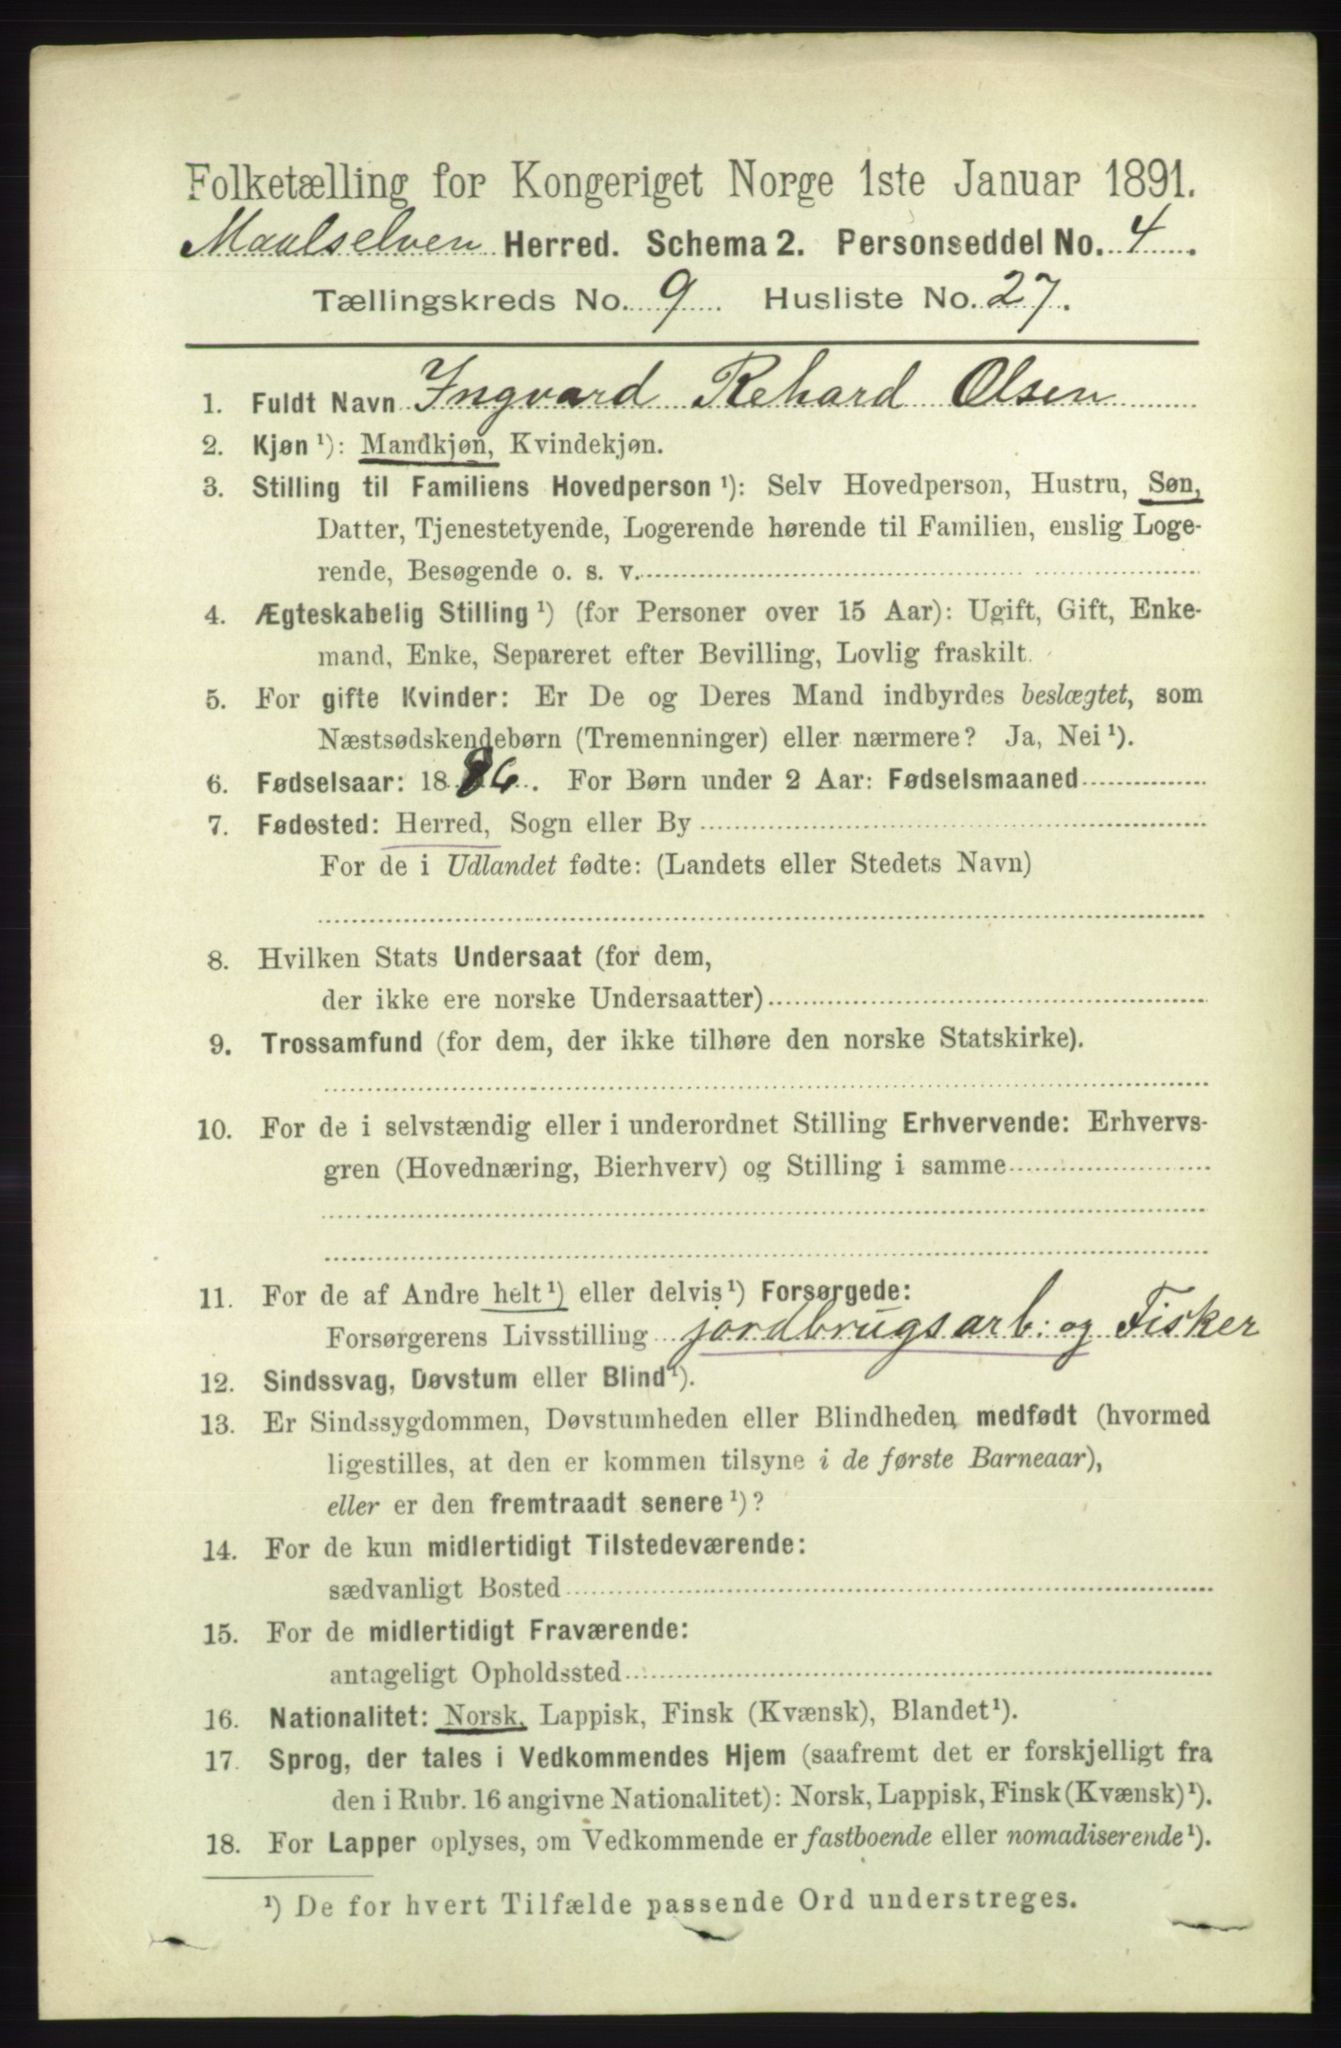 Folketælling for Kongeriget Norge 1ste Januar 1891.
Maalselven Herred. Schema 2. Personseddel No. 4.
Tællingskreds No. 9 Husliste No. 27.
1. Fuldt Navn Ingvard Rehard Olsen
2. Kjøn ¹): Mandkjøn, Kvindekjøn.
3. Stilling til Familiens Hovedperson ¹): Selv Hovedperson, Hustru, Søn,
Datter, Tjenestetyende, Logerende hørende til Familien, enslig Loge-
rende, Besøgende o. s. v.
4. Ægteskabelig Stilling ¹) (for Personer over 15 Aar): Ugift, Gift, Enke-
mand, Enke, Separeret efter Bevilling, Lovlig fraskilt.
5. For gifte Kvinder: Er De og Deres Mand indbyrdes beslægtet, som
Næstsødskendebørn (Tremenninger) eller nærmere? Ja, Nei ¹).
6. Fødselsaar: 1886. For Børn under 2 Aar: Fødselsmaaned
7. Fødested: Herred, Sogn eller By
For de i Udlandet fødte: (Landets eller Stedets Navn)
8. Hvilken Stats Undersaat (for dem,
der ikke ere norske Undersaatter)
9. Trossamfund (for dem, der ikke tilhøre den norske Statskirke).
10. For de i selvstændig eller i underordnet Stilling Erhvervende: Erhvervs-
gren (Hovednæring, Bierhverv) og Stilling i samme
11. For de af Andre helt ¹) eller delvis ¹) Forsørgede:
Forsørgerens Livsstilling jordbrugsarb. og Fisker
12. Sindssvag, Døvstum eller Blind ¹).
13. Er Sindssygdommen, Døvstumheden eller Blindheden medfødt (hvormed
ligestilles, at den er kommen tilsyne i de første Barneaar),
eller er den fremtraadt senere ¹)?
14. For de kun midlertidigt Tilstedeværende:
sædvanligt Bosted
15. For de midlertidigt Fraværende:
antageligt Opholdssted
16. Nationalitet: Norsk, Lappisk, Finsk (Kvænsk), Blandet ¹).
17. Sprog, der tales i Vedkommendes Hjem (saafremt det er forskjelligt fra
den i Rubr. 16 angivne Nationalitet): Norsk, Lappisk, Finsk (Kvænsk) ¹).
18. For Lapper oplyses, om Vedkommende er fastboende eller nomadiserende ¹).
¹) De for hvert Tilfælde passende Ord understreges.